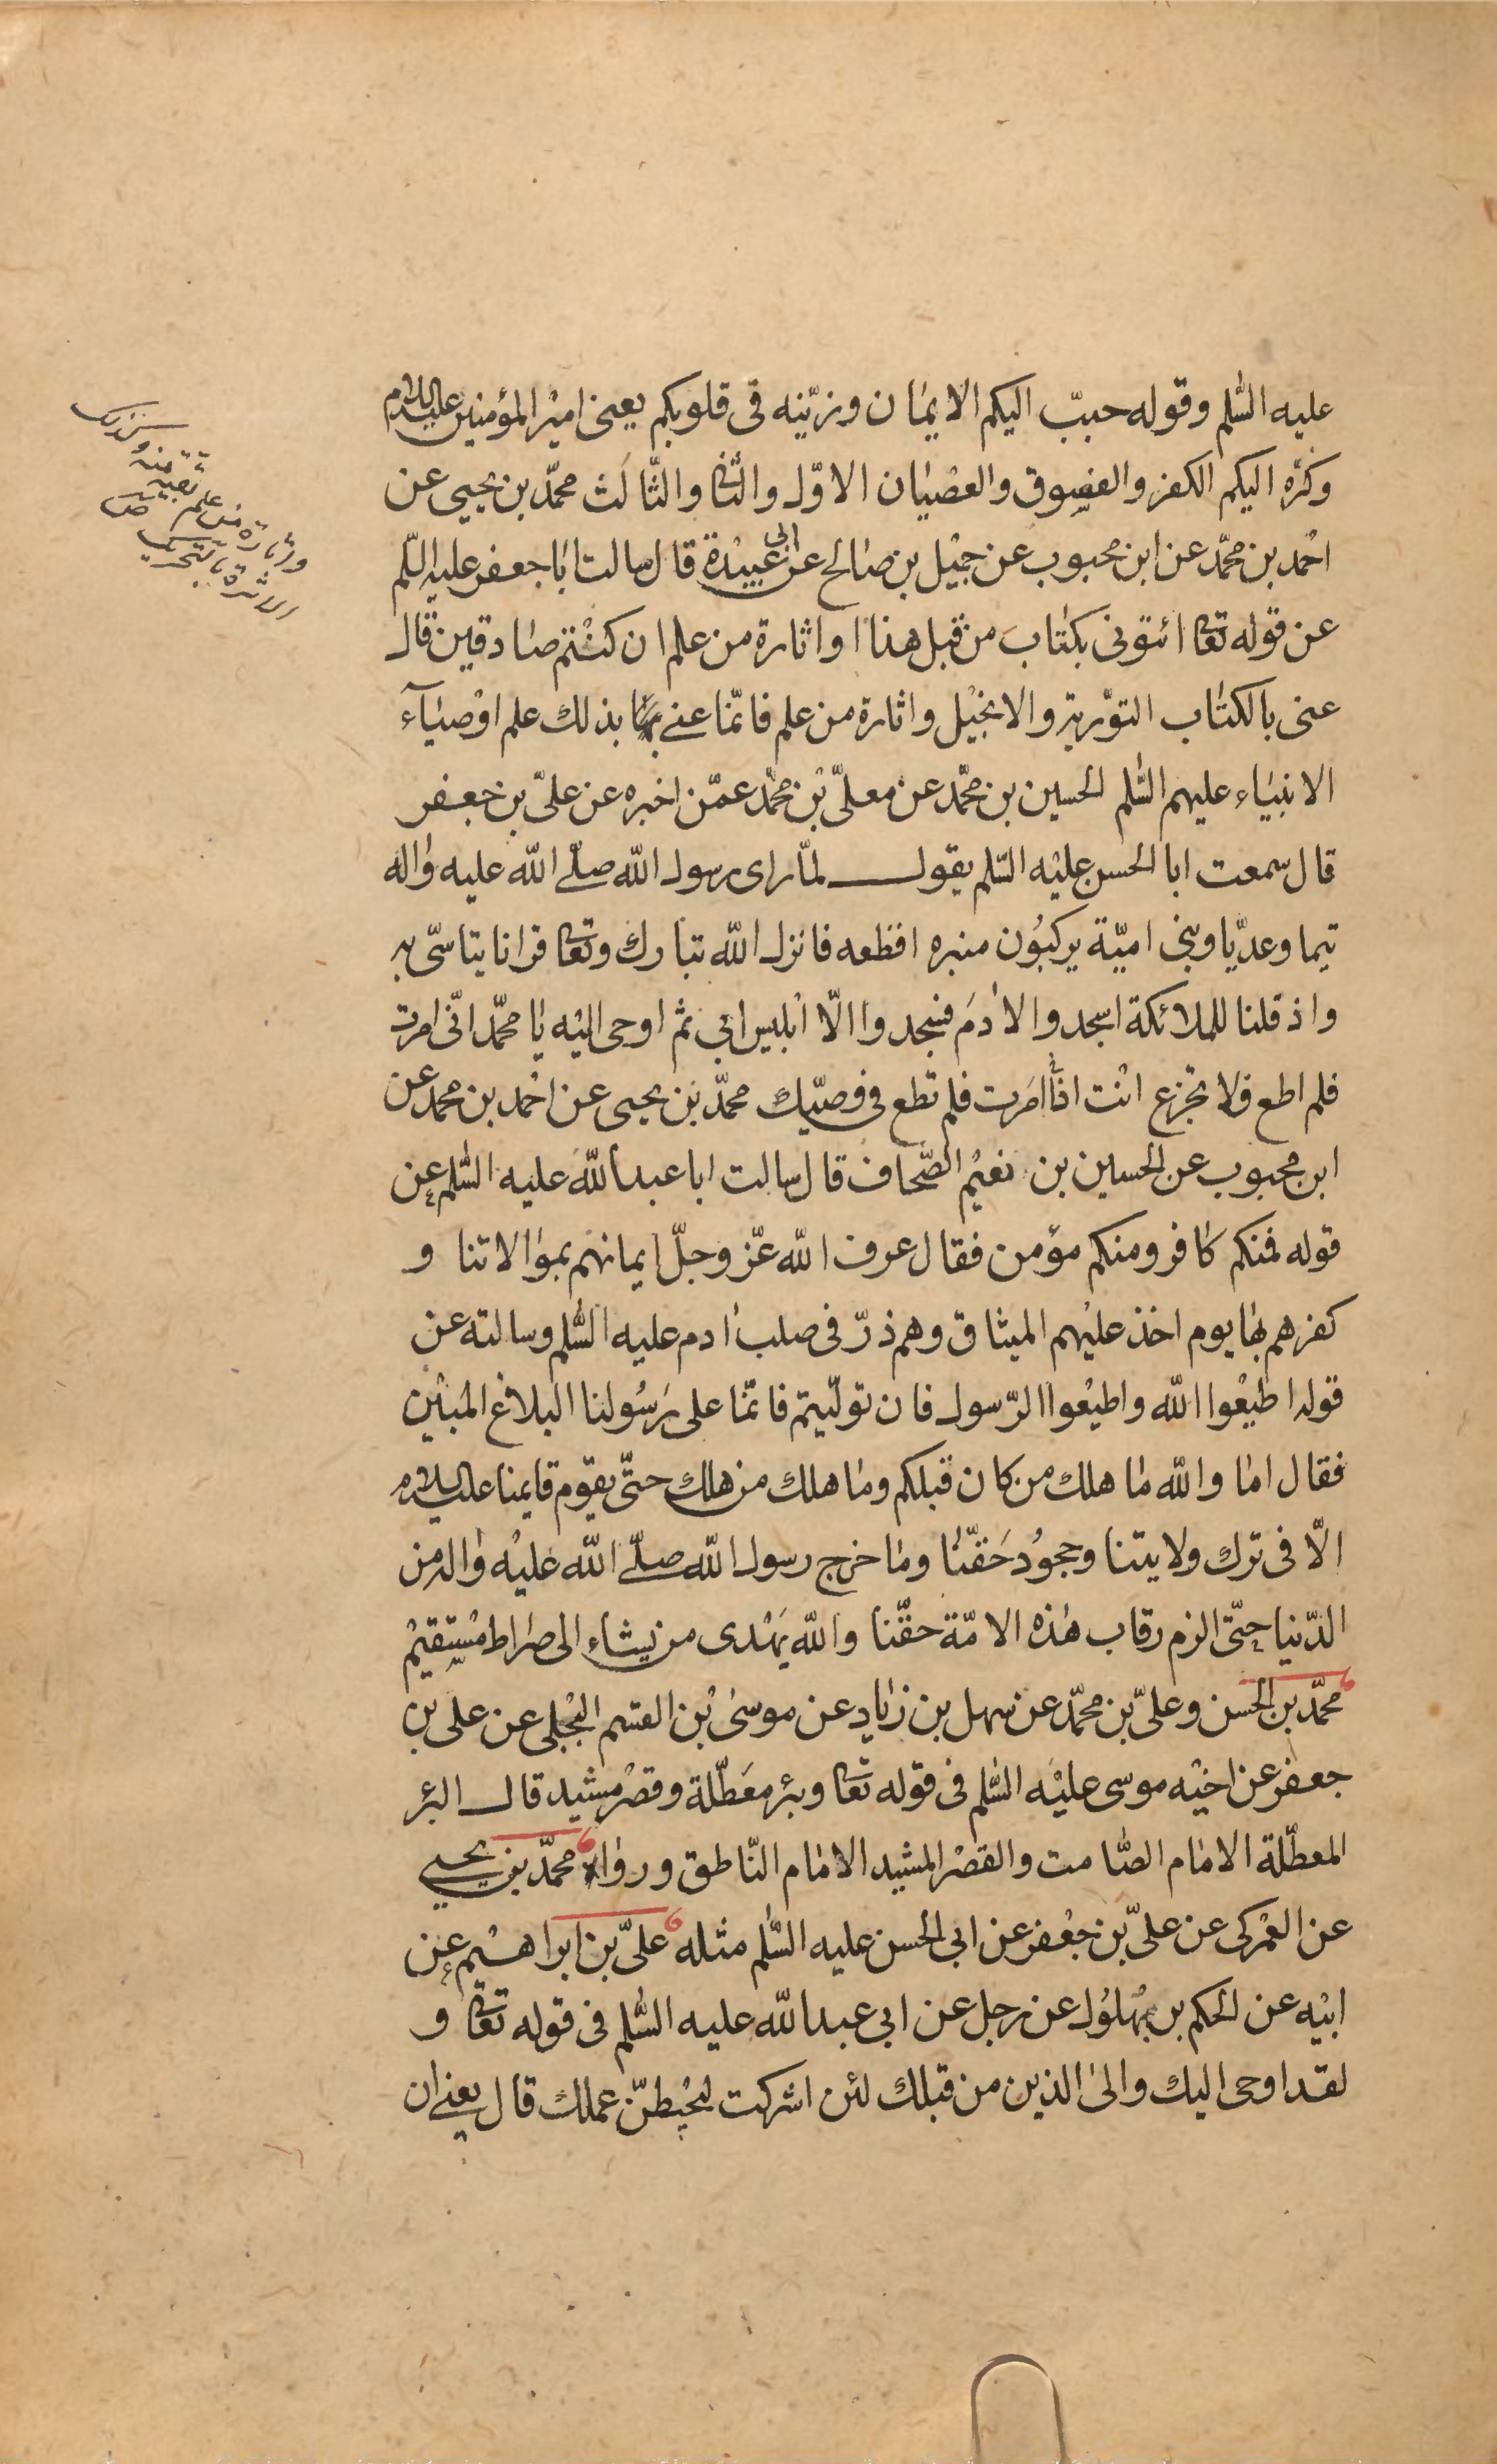 عليه السّلم وقوله حبّب اليكم الايمان وزيّنه في قلوبكم يعنى امير المؤمنين عليه السلام
وكرّه اليكم الكفر والفسوق والعصيان الاوّل والثانى والثّالث محمّد بن يحيى عن
احمد بن محمّد عن ابن محبوب عن جميل بن صالح عن ابى عبيدة قال سالت ابا جعفر عليه السّلم
عن قوله تعا ائتونى بكتاب من قبل هذا او اثارة من علم ان كنتم صادقين قال
عنى بالكتاب التوّرية والانجيل واثارة من علم فانّما عنى بذلك علم اوصيآء
الانبياء عليهم السّلم الحسين بن محمّد عن معلّى بن محمّد عمّن اخبره عن علىّ بن جعفر
قال سمعت ابا الحسن عليه السّلم يقول لمّا راى رسول الله صلّى الله عليه واله
تيما وعديّا وبنى اميّة يركبون منبره افظعه فانزل الله تبارك وتعا قرانا يتاسّى به
واذ قلنا للملائكة اسجدوا لادم فسجدوا الّا ابليس ابى ثم اوحى اليه يا محمّد انّى امرت
فلم اطع فلا تجزع انت اذا امرت فلم تطع فى وصيّك محمّد بن يحيى عن احمد بن محمد عن
ابن محبوب عن الحسين بن نعيم الصّحاف قال سالت ابا عبد الله عليه السّلم عن
قوله فمنكم كافر ومنكم مؤمن فقال عرف الله عزّ وجلّ ايمانهم بموالاتنا و
كفرهم بها يوم اخذ عليهم الميثاق وهم ذرّ فى صلب ادم عليه السّلم وسالته عن
قوله اطيعوا الله واطيعوا الرّسول فان تولّيتم فانّما على رسولنا البلاغ المبين
فقال اما والله ما هلك من كان قبلكم وما هلك من هلك حتّى يقوم قايمنا عليه السلام
الّا فى ترك ولايتنا وجحود حقّنا وما خرج رسول الله صلّى الله عليه واله من
الدّنيا حتّى الزم رقاب هذه الامّة حقّنا والله يهدى من يشاء الى صراط مستقيم
محمّد بن الحسن وعلىّ بن محمّد عن سهل بن زياد عن موسى بن القسم البجلى عن على بن
جعفر عن اخيه موسى عليه السّلم فى قوله تعا وبئر معطّلة وقصر مشيد قال البئر
المعطّلة الامام الصّامت والقصر المشيد الامام النّاطق ورواه محمّد بن يحيى
عن العمركى عن علىّ بن جعفر عن ابى الحسن عليه السّلم مثله علىّ بن ابراهيم عن
ابيه عن الحكم بن بهلول عن رجل عن ابى عبد الله عليه السّلم فى قوله تعا و
لقد اوحى اليك والى الذين من قبلك لئن اشركت ليحبطنّ عملك قال يعنى ان
واثارة من علم بقية منه
الاثرة بالتحريك